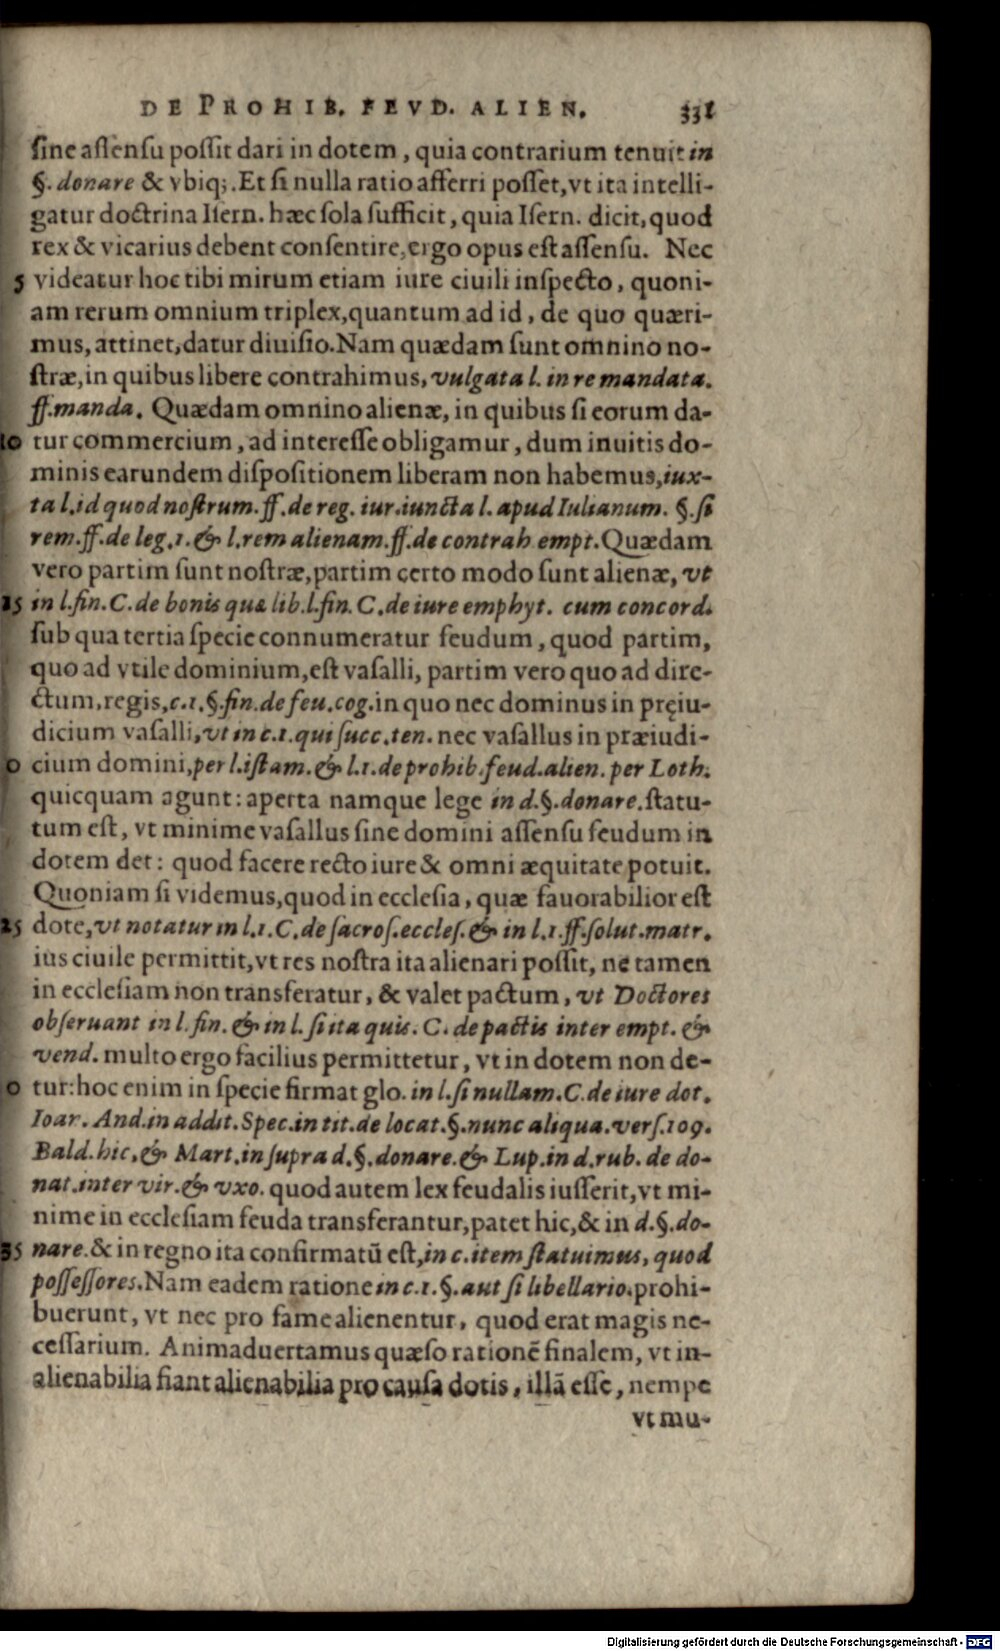 DE PROHIB. FEVD. ALIEN. 331
sine assensu possit dari in dotem, quia contrarium tenuit in
§. donare & vbiq;. Et si nulla ratio afferri posset, vt ita intelli-
gatur doctrina Isern. hæc sola sufficit, quia Isern. dicit, quod
rex & vicarius debent consentire, ergo opus est assensu. Nec
5 videatur hoc tibi mirum etiam iure ciuili inspecto, quoni-
am rerum omnium triplex, quantum ad id, de quo quæri-
mus, attinet, datur diuisio. Nam quædam sunt omnino no-
stræ, in quibus libere contrahimus, vulgata l. in re mandata.
ff. manda. Quædam omnino alienæ, in quibus si eorum da-
10 tur commercium, ad interesse obligamur, dum inuitis do-
minis earundem dispositionem liberam non habemus, iux-
ta l. id quod nostrum. ff. de reg. iur. iuncta l. apud Iulianum. §. si
rem. ff. de leg. 1. & l. rem alienam. ff. de contrah empt. Quædam
vero partim sunt nostræ, partim certo modo sunt alienæ, vt
15 in l. fin. C. de bonis quæ lib. l. fin. C. de iure emphyt. cum concord.
sub qua tertia specie connumeratur feudum, quod partim,
quo ad vtile dominium, est vasalli, partim vero quo ad dire-
ctum, regis, c. 1. §. fin. de feu. cog. in quo nec dominus in pręiu-
dicium vasalli, vt in c. 1. qui succ. ten. nec vasallus in præiudi-
0 cium domini, per l. istam. & l. 1. de prohib. feud. alien. per Loth.
quicquam agunt: aperta namque lege in d. §. donare. statu-
tum est, vt minime vasallus sine domini assensu feudum in
dotem det: quod facere recto iure & omni æquitate potuit.
Quoniam si videmus, quod in ecclesia, quæ fauorabilior est
25 dote, vt notatur in l. 1. C. de sacros. eccles. & in l. 1. ff. solut. matr.
ius ciuile permittit, vt res nostra ita alienari possit, ne tamen
in ecclesiam non transferatur, & valet pactum, vt Doctores
obseruant in l. fin. & in l. si ita quis. C. de pactis inter empt. &
vend. multo ergo facilius permittetur, vt in dotem non de-
0 tur: hoc enim in specie firmat glo. in l. si nullam. C. de iure dot.
Ioar. And. in addit. Spec. in tit. de locat. §. nunc aliqua. vers. 109.
Bald. hic, & Mart. in supra d. §. donare. & Lup. in d. rub. de do-
nat. inter vir. & vxo. quod autem lex feudalis iusserit, vt mi-
nime in ecclesiam feuda transferantur, patet hic, & in d. §. do-
35 nare. & in regno ita confirmatū est, in c. item statuimus, quod
possessores. Nam eadem ratione in c. 1. §. aut si libellario. prohi-
buerunt, vt nec pro fame alienentur, quod erat magis ne-
cessarium. Animaduertamus quæso rationē finalem, vt in-
alienabilia fiant alienabilia pro causa dotis, illā esse, nempe
vt mu-
Digitalisierung gefördert durch die Deutsche Forschungsgemeinschaft - DFG